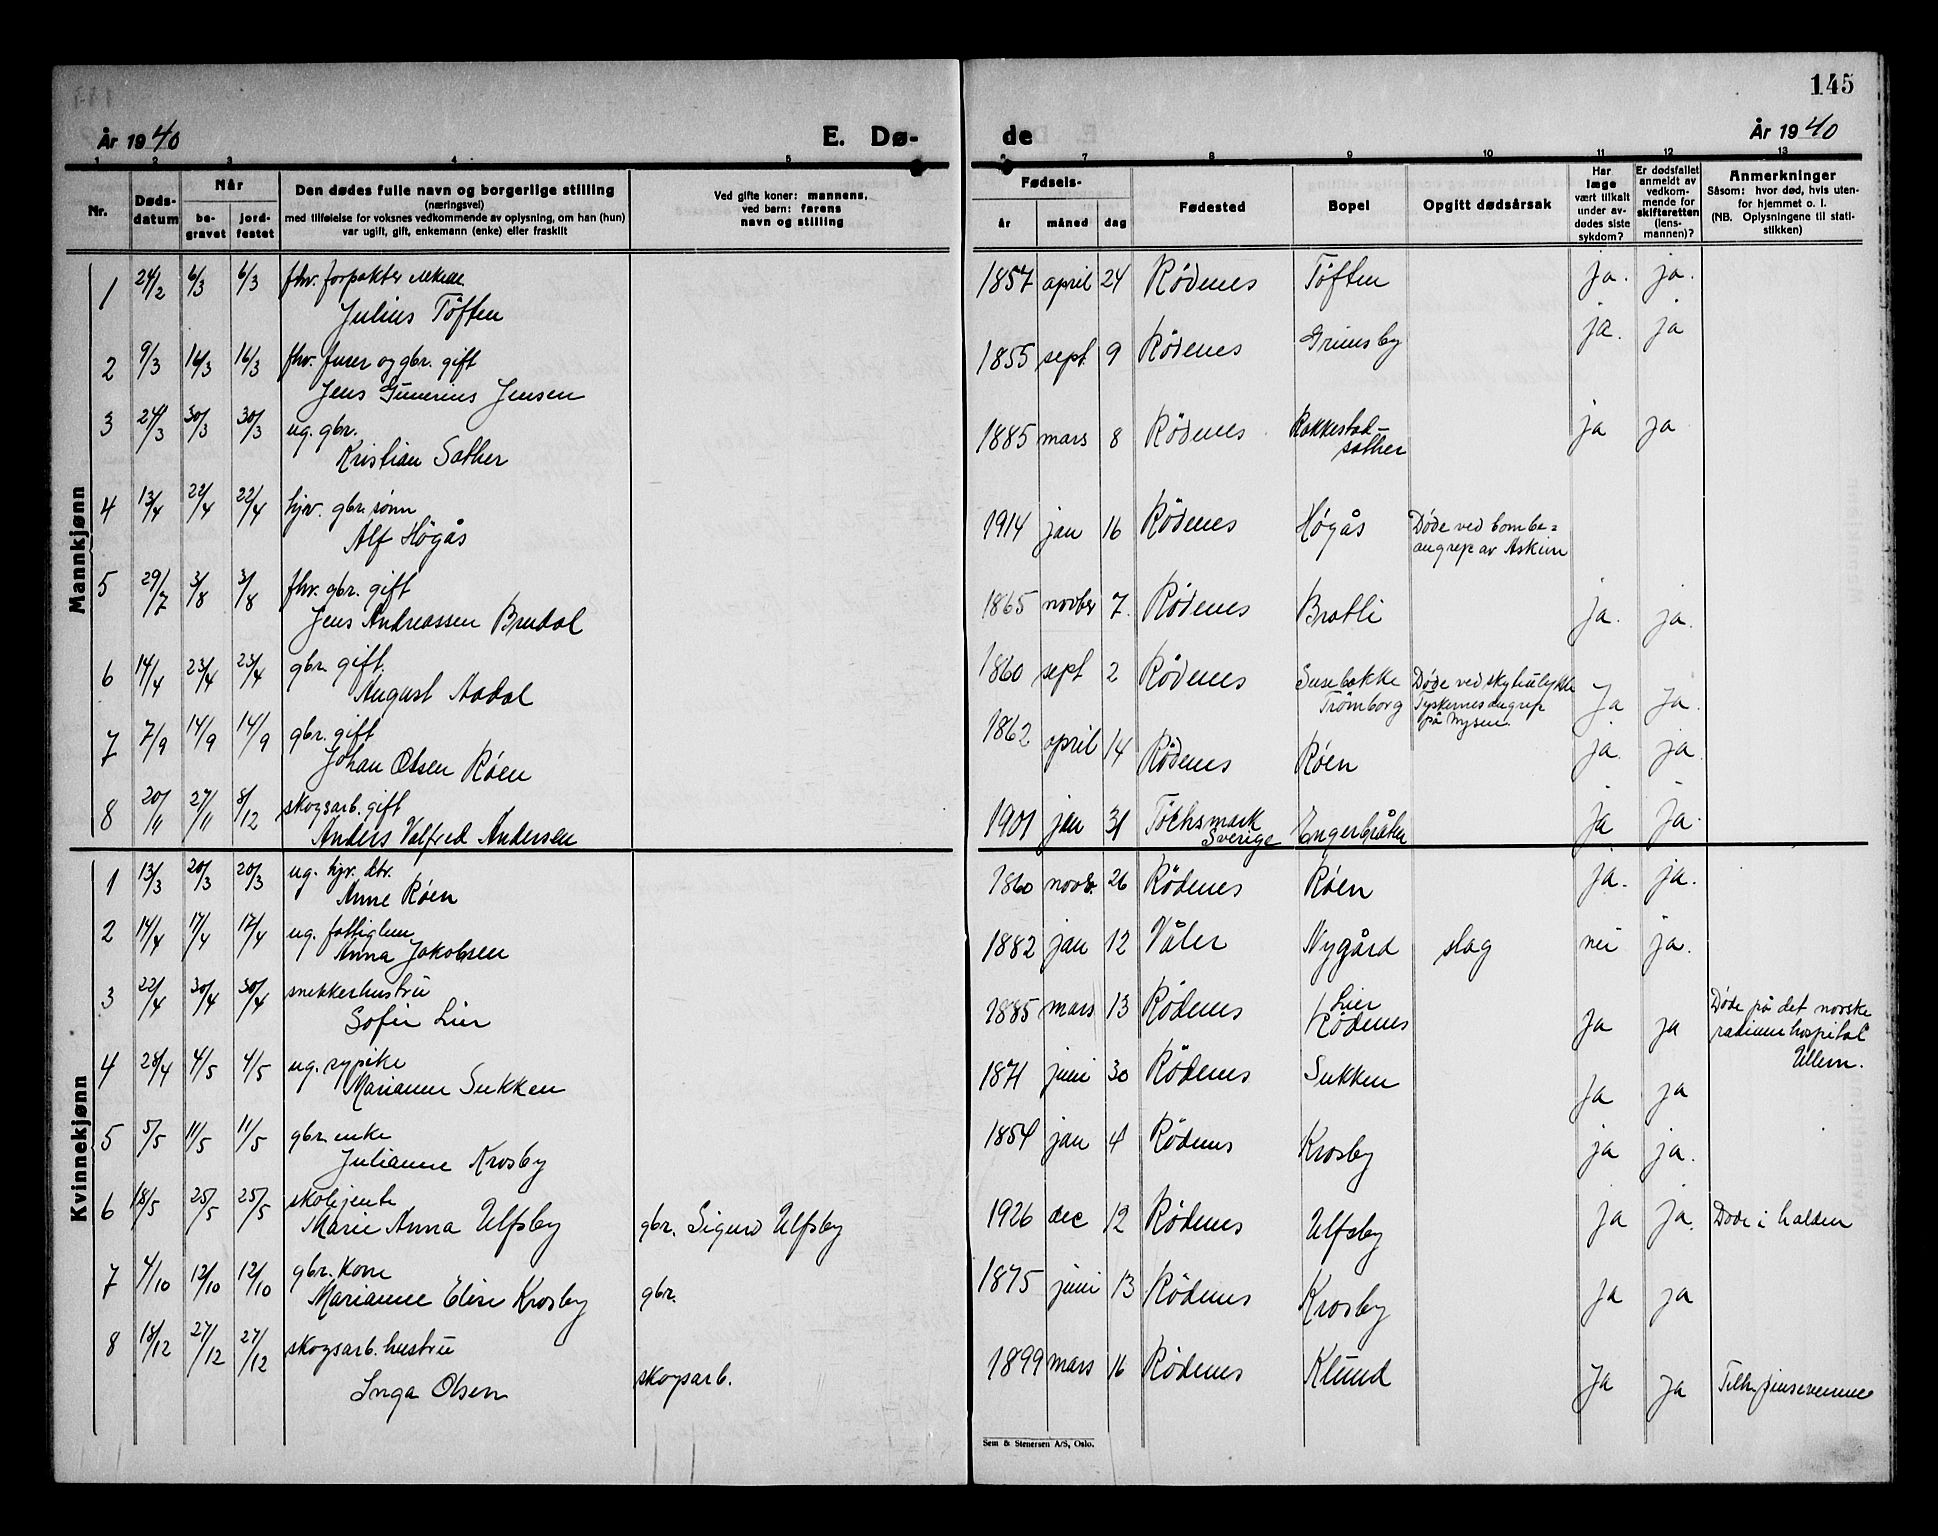 145
År 1940
E. Dø-
de
År 1940
1 2 3 4 5 6 7 8 9 10 11 12 13
Nr.
Døds-
datum
Når
be-
gravet
jord-
festet
Den dødes fulle navn og borgerlige stilling
(næringsvei)
med tilføielse for voksnes vedkommende av oplysning, om han (hun)
var ugift, gift, enkemann (enke) eller fraskilt
Ved gifte koner: mannens,
ved barn: farens
navn og stilling
Fødsels-
år
måned
dag
Fødested
Bopel
Opgitt dødsårsak
Har
læge
vært tilkalt
under av-
dødes siste
sykdom?
Er dødsfallet
anmeldt av
vedkom-
mende for
skifteretten
(lens-
mannen)?
Anmerkninger
Såsom: hvor død, hvis uten-
for hjemmet o. l.
(NB. Oplysningene til stati-
stikken)
Mannkjønn
1 24/2 6/3 6/3 fhv. forpakter
Julius Töften
1857 april 24 Rödenes Töften ja. ja.
2 9/3 16/3 16/3 fhv. furer og gbr. gift
Jens Gunerius Jensen
1855 sept. 9 Rödenes Grimsby ja. ja
3 24/3 30/3 30/3 ug. gbr.
Kristian Sæther
1885 mars 8 Rödenes Rakkestad-
sæther ja ja
4 13/4 22/4 22/4 hjv. gbr. sønn
Alf Högås
1914 jan 16 Rödenes Högås Döde ved bombe=
angrep av Askim
5 29/7 3/8 3/8 fhv. gbr. gift
Jens Andreassen Brudal
1865 novber 7. Rödenes Bratli ja. ja.
6 14/4 23/4 23/4 gbr. gift.
August Aadal
1860 sept 2 Rödenes Susebakke
Trömborg Döde ved skyteulykke
Tyskernes angrep
på Mysen. Ja ja.
7 7/9 14/9 14/9 gbr. gift
Johan Olsen Röen
1862 april 14 Rödenes Röen ja. ja.
8 20/11 27/11 8/12 skogsarb. gift
Anders Valfred Andersen
1901 jan 31 Töcksmark
Sverige Engerbråten ja ja.
Kvinnekjønn
1 13/3 20/3 20/3 ug. hjv. dtr.
Anne Röen
1860 novb. 26 Rödenes Röen ja. ja.
2 14/4 17/4 17/4 ug. fattiglem
Anna Jakobsen
1882 jan 12 Våler Nygård slag nei ja.
3 22/4 30/4 30/4 snekkerhustru
Sofie Lier
1885 mars 13 Rödenes Lier
Rödenes Ja ja Döde på det norske
radiumhospital
Ullern.
4 28/4 4/5 4/5 ug. sypike
Marianne Sukken
1871 juni 30 Rödenes Sukken Ja ja
5 5/5 11/5 11/5 gbr. enke
Julianne Krosby
1854 jan 4 Rödenes Krosby ja ja.
6 18/5 25/5 25/5 skolejente
Marie Anna Ulfsby gbr. Sigurd Ulfsby
1926 dec 12 Rödenes Ulfsby ja ja. Döde i halden
7 4/10 12/10 12/10 gbr. kone
Marianne Elise Krosby gbr.
1875 juni 13 Rödenes Krosby ja ja
8 18/12 27/12 27/12 skogsarb. hustru
Inga Olsen skogsarb.
1899 mars 16 Rödenes Klund Ja ja Tilh. pinsevennene
Sem & Stenersen A/S, Oslo.